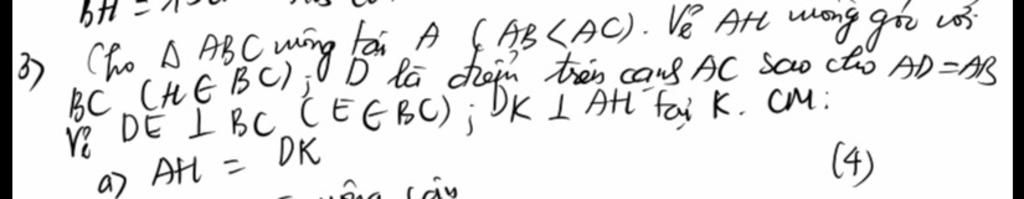 BH =
3) Cho Δ ABC vuông tại A (AB < AC). Vẽ AH vuông góc với
BC (H ∈ BC); D là điểm trên cạnh AC sao cho AD = AB
Vẽ DE ⊥ BC (E ∈ BC); DK ⊥ AH tại K. CM:
a) AH = DK (4)